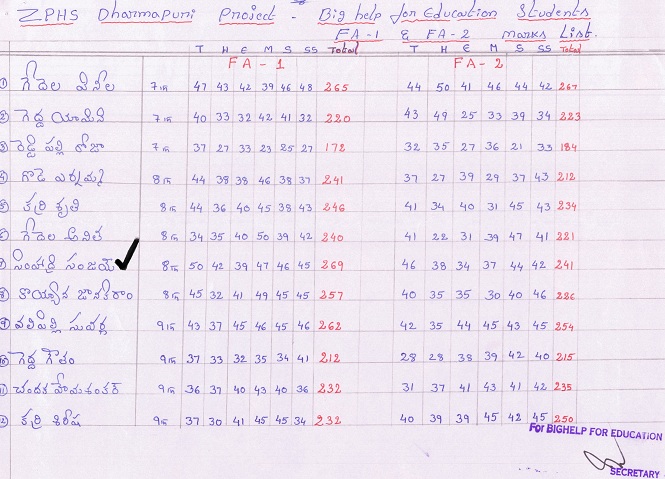 ZPHS Dharmapuri Project - Big help for Education Students
FA-1 & FA-2 marks List.
T H E M S SS Total T H E M S SS Total
FA-1 FA-2
① గేదెల వినీల 7th 47 43 42 39 46 48 265 44 50 41 46 44 42 267
② గెద్ద యామిని 7th 40 33 32 42 41 32 220 43 49 25 33 39 34 223
③ రెడ్డి పల్లి రోజా 7th 37 27 33 23 25 27 172 32 35 27 36 21 33 184
④ గొడె 8th 44 38 38 46 38 37 241 37 27 39 29 37 43 212
⑤ కర్రి శృతి 8th 44 36 40 45 38 43 246 41 34 40 31 45 43 234
⑥ గేదెల అనిత 8th 34 35 40 50 39 42 240 41 22 31 39 47 41 221
⑦ సింహాద్రి సంజయ్ 8th 50 42 39 47 46 45 269 46 38 34 37 44 42 241
⑧ కొయ్యాన జానకిరాం 8th 45 32 41 49 45 45 257 40 35 35 30 40 46 226
⑨ వలిపల్లి సువర్ణ 9th 43 37 45 46 45 46 262 42 35 44 45 43 45 254
⑩ గెద్ద గౌతం 9th 37 33 32 35 34 41 212 28 28 38 39 42 40 215
⑪ చందక హేమశంకర్ 9th 36 37 40 43 40 36 232 31 37 41 43 41 42 235
⑫ కర్రి శిరీష 9th 37 30 41 45 45 34 232 40 39 39 45 42 45 250
For BIGHELP FOR EDUCATION
SECRETARY